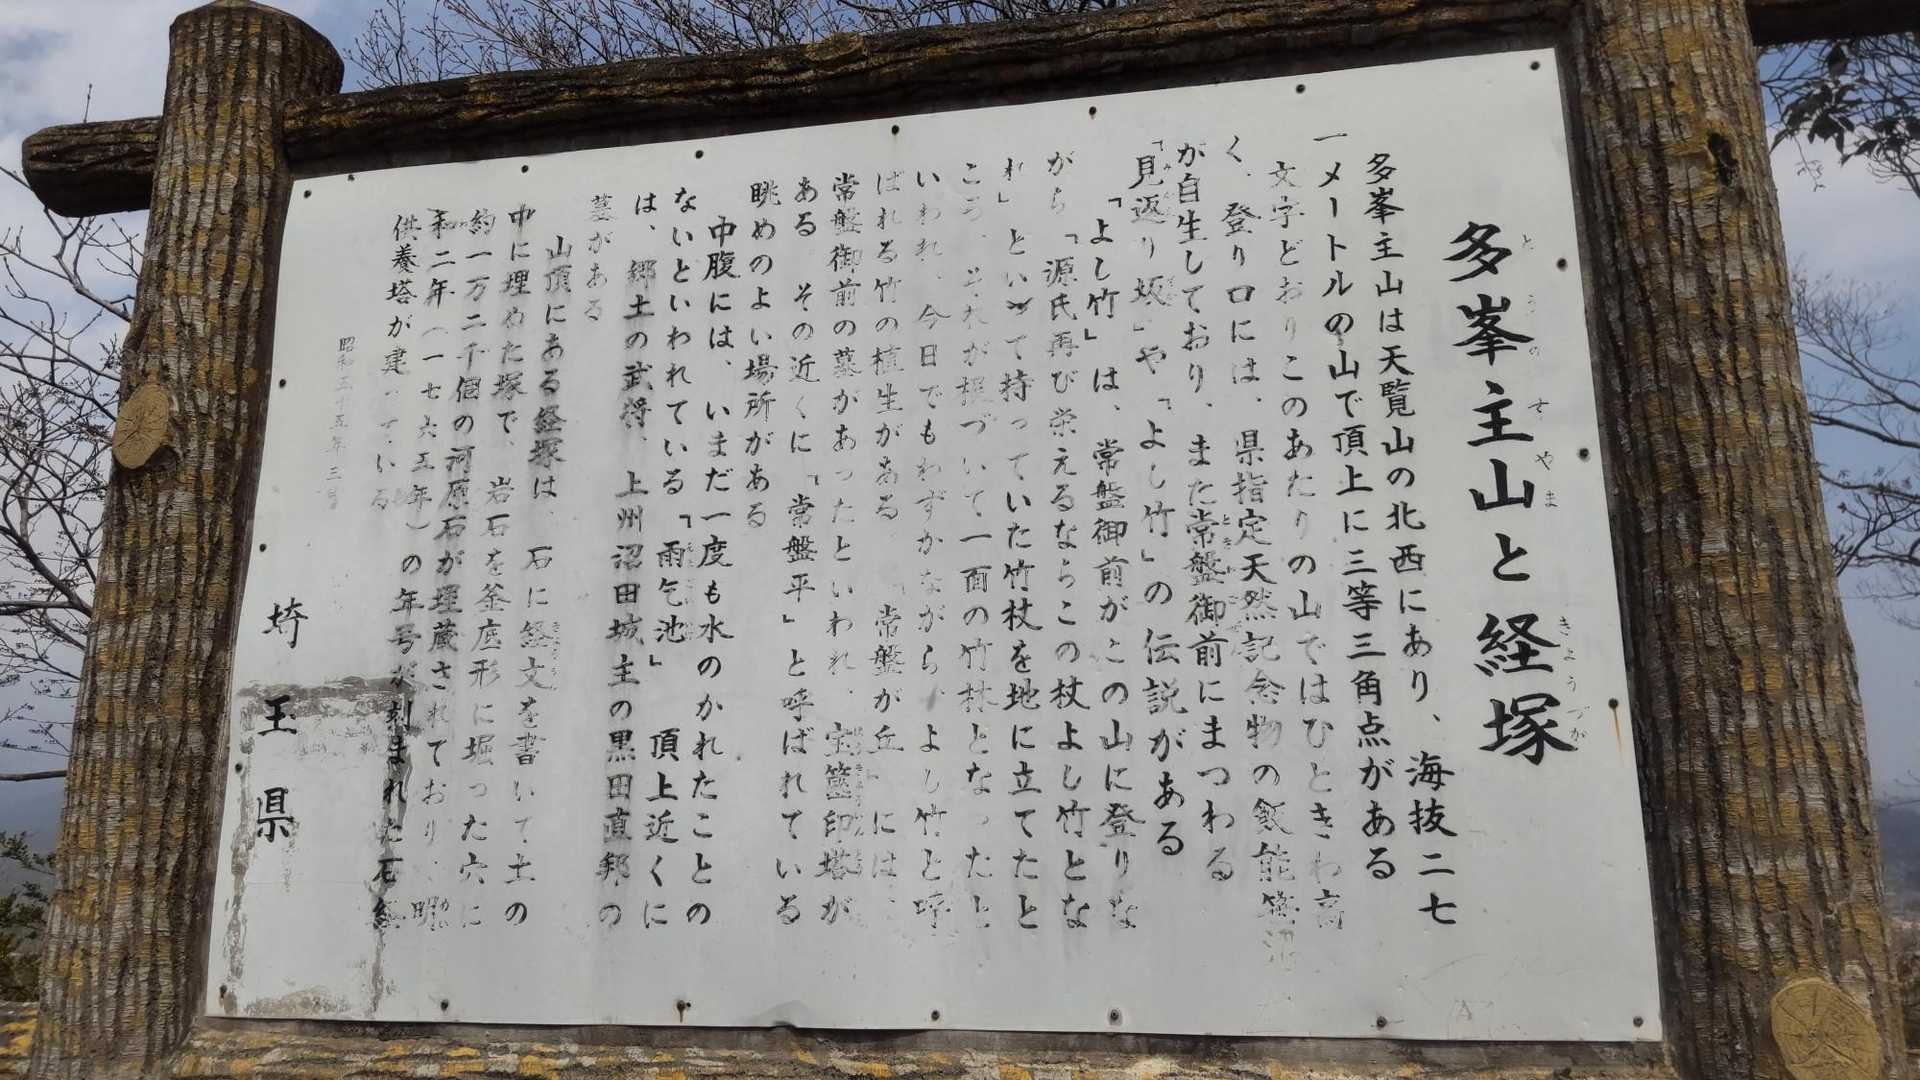 多峯主山と経塚
多峯主山は天覧山の北西にあり、海抜二七
一メートルの山で頂上に三等三角点がある
文字どおりこのあたりの山ではひときわ高
く、登り口には、県指定天然記念物の飯能笹
が自生しており、また常盤御前にまつわる
「見返り坂」や「よし竹」の伝説がある
「よし竹」は、常盤御前がこの山に登りな
がら「源氏再び栄えるならこの杖よし竹とな
れ」といって持っていた竹杖を地に立てたと
ころ、それが根づいて一面の竹林となったと
いわれ、今日でもわずかながら、よし竹と呼
ばれる竹の植生がある 「常盤が丘」には、
常盤御前の墓があったといわれ、宝篋印塔が
ある その近くに「常盤平」と呼ばれている
眺めのよい場所がある
中腹には、いまだ一度も水のかれたことの
ないといわれている「雨乞池」 頂上近くに
は、郷土の武将、上州沼田城主の黒田直邦の
墓がある
山頂にある経塚は、石に経文を書いて土の
中に埋めた塚で、岩石を釜底形に堀った穴に
約一万二千個の河原石が埋蔵されており、明
和二年(一七六五年)の年号が刻まれた石経
供養塔が建っている
昭和五十五年三月
埼玉県